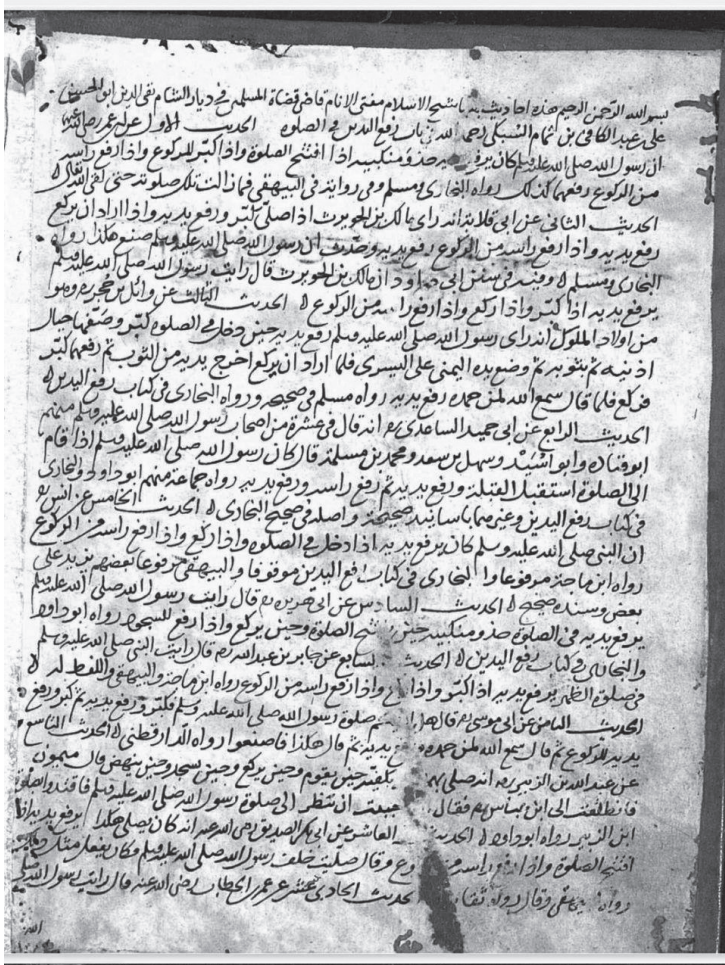 بسم الله الرحمن الرحيم هذه احاديث شيخ الاسلام مفتى الانام قاضى قضاة المسلمين فى ديار الشام تقى الدين ابو الحسن
على بن عبد الكافى بن تمام السبكى رحمه الله فى باب رفع اليدين فى الصلوة الحديث الاول عن ابن عمر رضى الله عنهما
ان رسول الله صلى الله عليه وسلم كان يرفع يديه حذو منكبيه اذا افتتح الصلوة واذا كبر للركوع واذا رفع راسه
من الركوع رفعهما كذلك رواه البخارى ومسلم وفى رواية فى البيهقى فما زالت تلك صلوته حتى لقى الله تعالى
الحديث الثانى عن ابى قلابة انه راى مالك بن الحويرث اذا صلى كبر ورفع يديه واذا اراد ان يركع
رفع يديه واذا رفع راسه من الركوع رفع يديه وحدث ان رسول الله صلى الله عليه وسلم صنع هكذا رواه
البخارى ومسلم وفيه فى سنن ابى داود ان مالك بن الحويرث قال رايت رسول الله صلى الله عليه وسلم
يرفع يديه اذا كبر واذا ركع واذا رفع راسه من الركوع الحديث الثالث عن وائل بن حجر وهو
من اولاد الملوك انه راى رسول الله صلى الله عليه وسلم رفع يديه حين دخل فى الصلوة كبر وصفهما حيال
اذنيه ثم بثوبه ثم وضع يده اليمنى على اليسرى فلما اراد ان يركع اخرج يديه من الثوب ثم رفعهما كبر
فركع فلما قال سمع الله لمن حمده رفع يديه رواه مسلم فى صحيحه ورواه البخارى فى كتاب رفع اليدين
الحديث الرابع عن ابى حميد الساعدى انه قال فى عشرة من اصحاب رسول الله صلى الله عليه وسلم منهم
ابو قتاده وابو اسيد وسهل بن سعد ومحمد بن مسلمة قال كان رسول الله صلى الله عليه وسلم اذا قام
الى الصلوة استقبل القبلة ورفع يديه ثم رفع راسه ورفع يديه رواه جماعة منهم ابو داود والبخارى
فى كتاب رفع اليدين وغيرهما باسانيد صحيحة واصله فى صحيح البخارى الحديث الخامس عن انس
ان النبى صلى الله عليه وسلم كان يرفع يديه اذا دخل فى الصلوه واذا ركع واذا رفع راسه من الركوع
رواه ابن ماجة مرفوعا والبخارى فى كتاب رفع اليدين موقوفا والبيهقى مرفوعا بعضهم يزيد على
بعض وسنده صحيح الحديث السادس عن ابى هريرة قال رايت رسول الله صلى الله عليه وسلم
يرفع يديه فى الصلوة حذو منكبيه حين يفتتح الصلوة وحين يركع واذا رفع للسجود رواه ابو داود
والبخارى فى كتاب رفع اليدين الحديث السابع عن جابر بن عبد الله قال رايت النبى صلى الله عليه وسلم
فى صلوة الظهر يرفع يديه اذا كبر واذا ركع واذا رفع راسه من الركوع رواه ابن ماجة والبيهقى واللفظ له
الحديث الثامن عن ابى موسى قال هل اريكم صلوة رسول الله صلى الله عليه وسلم فكبر ورفع يديه ثم كبر ورفع
يديه للركوع ثم قال سمع الله لمن حمده ورفع يديه ثم قال هكذا فاصنعوا رواه الدارقطنى الحديث التاسع
عن عبد الله بن الزبير انه صلى بهم بكفيه حين يقوم وحين يركع وحين يسجد وحين ينهض قال ميمون
فانطلقت الى ابن عباس فقال احببت ان تنظر الى صلوة رسول الله صلى الله عليه وسلم فاقتد بصلوة
ابن الزبير رواه ابو داود الحديث العاشر عن ابى بكر الصديق رضى الله عنه انه كان يصلى هكذا يرفع يديه اذا
افتتح الصلوة واذا رفع راسه من الركوع وقال صليت خلف رسول الله صلى الله عليه وسلم فكان يفعل مثل ذلك
رواه البيهقى وقال رواته ثقات الحديث الحادى عشر عن عمر بن الخطاب رضى الله عنه قال رايت رسول الله صلى
الله